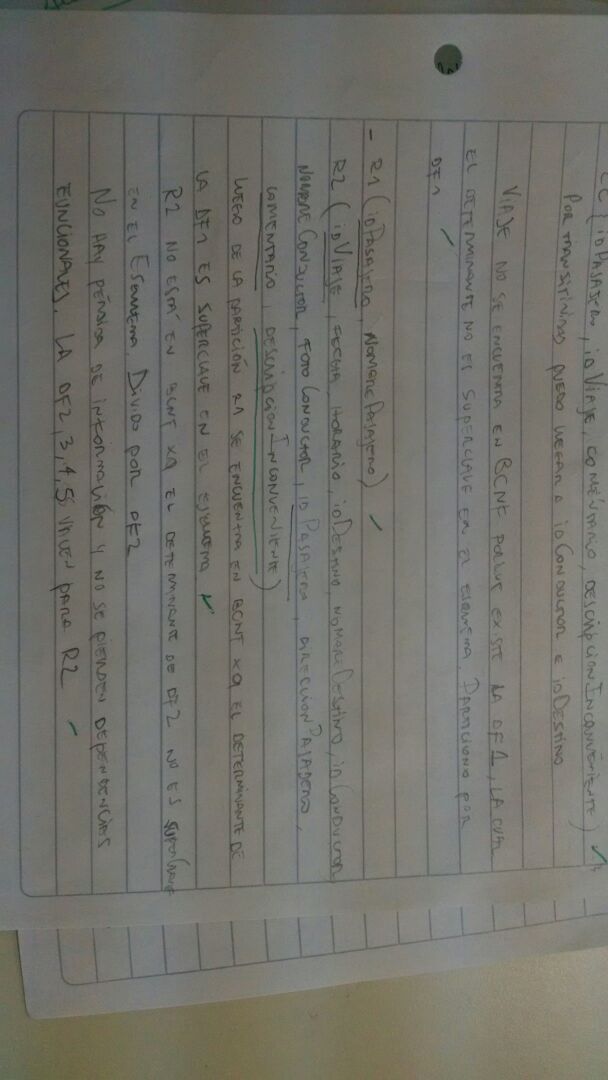 CC {idPASAJERO, idVIAJE, COMENTARIO, DESCRIPCIONINCONVENIENTE}
POR TRANSITIVIDAD PUEDO LLEGAR A idCONDUCTOR E idDESTINO
VIAJE NO SE ENCUENTRA EN BCNF PORQUE EXISTE LA DF1, LA CUAL
EL DETERMINANTE NO ES SUPERCLAVE EN EL ESQUEMA. PARTICIONO POR
DF1
- R1 (idPASAJERO, NOMBREPASAJERO)
R2 (idVIAJE, FECHA HORARIO, idDESTINO, NOMBREDESTINO, idCONDUCTOR
NOMBRECONDUCTOR, FOTOCONDUCTOR, idPASAJERO, DIRECCIONPASAJERO,
COMENTARIO, DESCRIPCIONINCONVENIENTE)
LUEGO DE LA PARTICIÓN R1 SE ENCUENTRA EN BCNF XQ EL DETERMINANTE DE
LA DF1 ES SUPERCLAVE EN EL ESQUEMA
R2 NO ESTÁ EN BCNF XQ EL DETERMINANTE DE DF2 NO ES SUPERCLAVE
EN EL ESQUEMA. DIVIDO POR DF2
NO HAY PÉRDIDA DE INFORMACIÓN Y NO SE PIERDEN DEPENDENCIAS
FUNCIONALES. LA DF2, 3, 4, 5 VALEN PARA R2